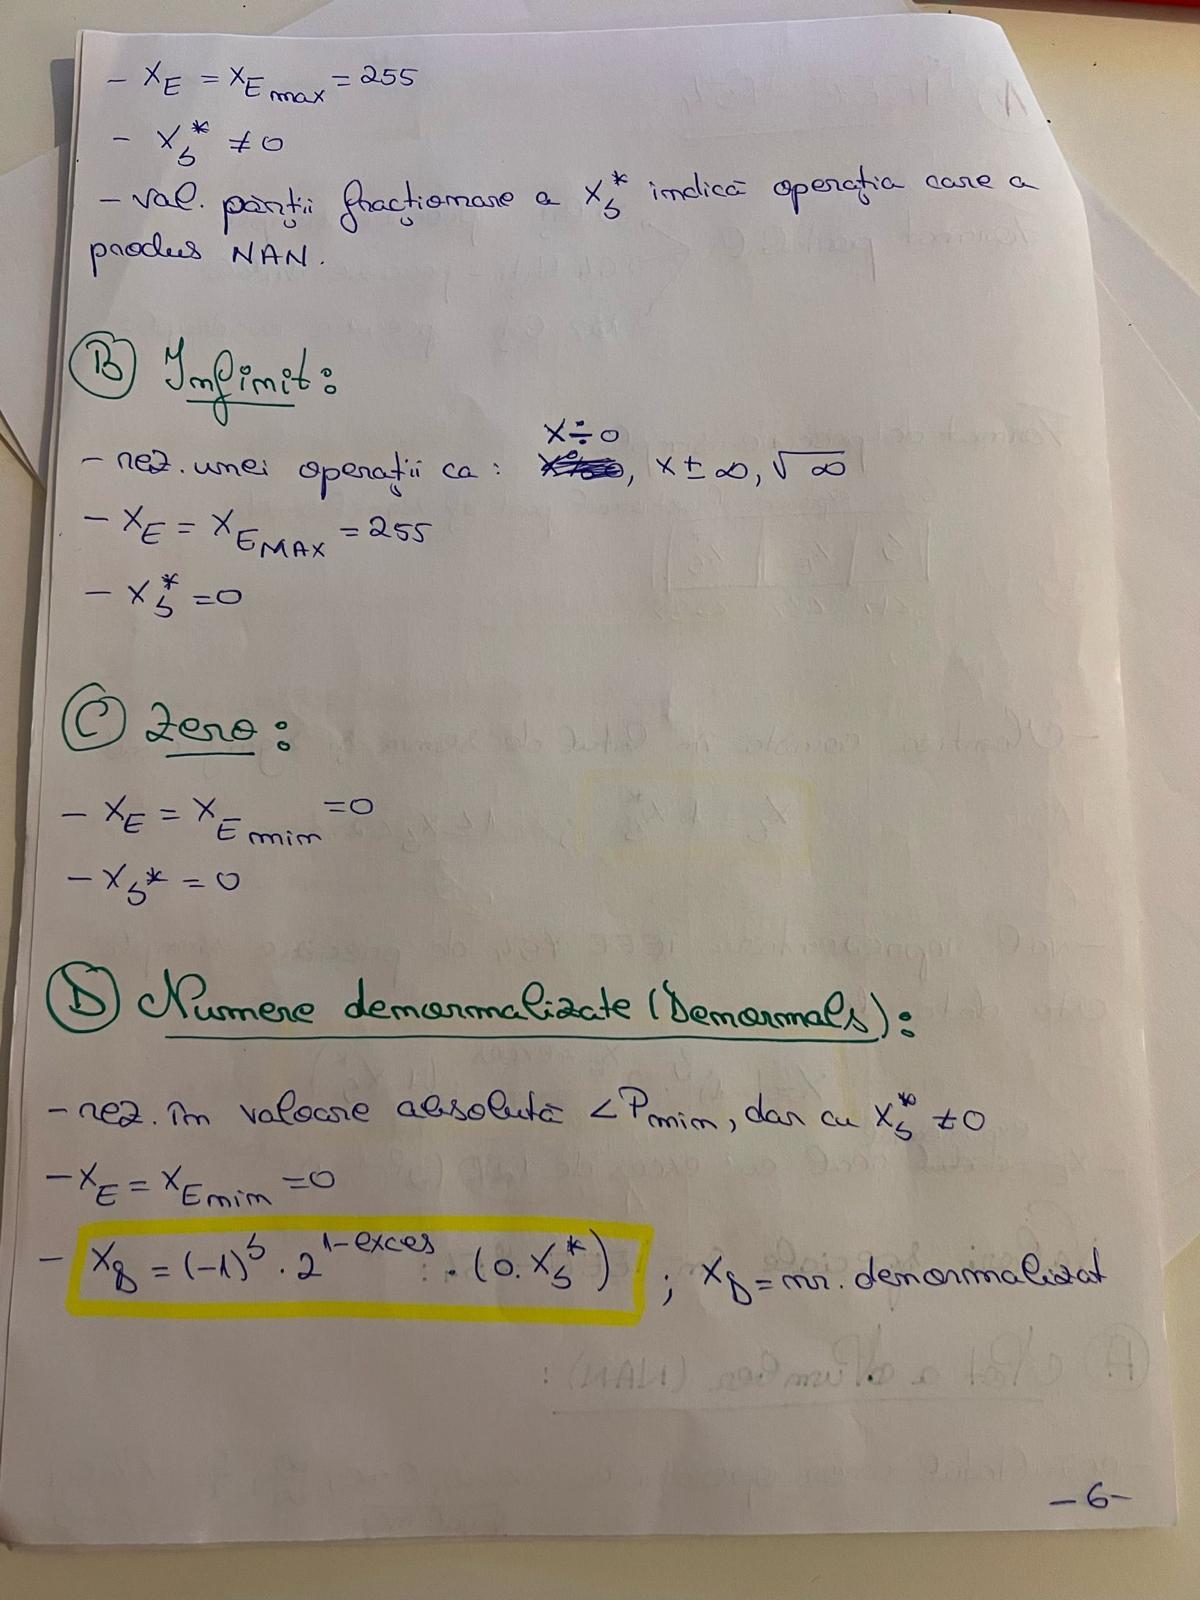 - X_E = X_E max = 255
- X_S^* ≠ 0
- val. părții fracționare a X_S^* indică operația care a
produs NAN.
Ⓑ Infinit:
X÷0
- rez. unei operații ca: , X ± ∞, √∞
- X_E = X_E MAX = 255
- X_S^* = 0
Ⓒ Zero:
- X_E = X_E min = 0
- X_S* = 0
Ⓓ Numere denormalizate (Denormals):
- rez. în valoare absolută < P_min, dar cu X_S^* ≠ 0
- X_E = X_E min = 0
- X_D = (-1)^S · 2^(1-exces) · (0.X_S^*) ; X_D = nr. denormalizat
- 6 -